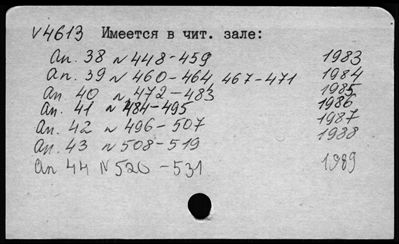 V4613 Имеется в чит. зале:
Ап. 38 N 448-459 1983
Ап. 39 N 460-464, 467-471 1984
Ап 40 N 472-483 1985
Ап. 41 N 484-495 1986
Ап. 42 N 496-507 1987
Ап. 43 N 508-519 1988
Ап 44 N 520-531 1989